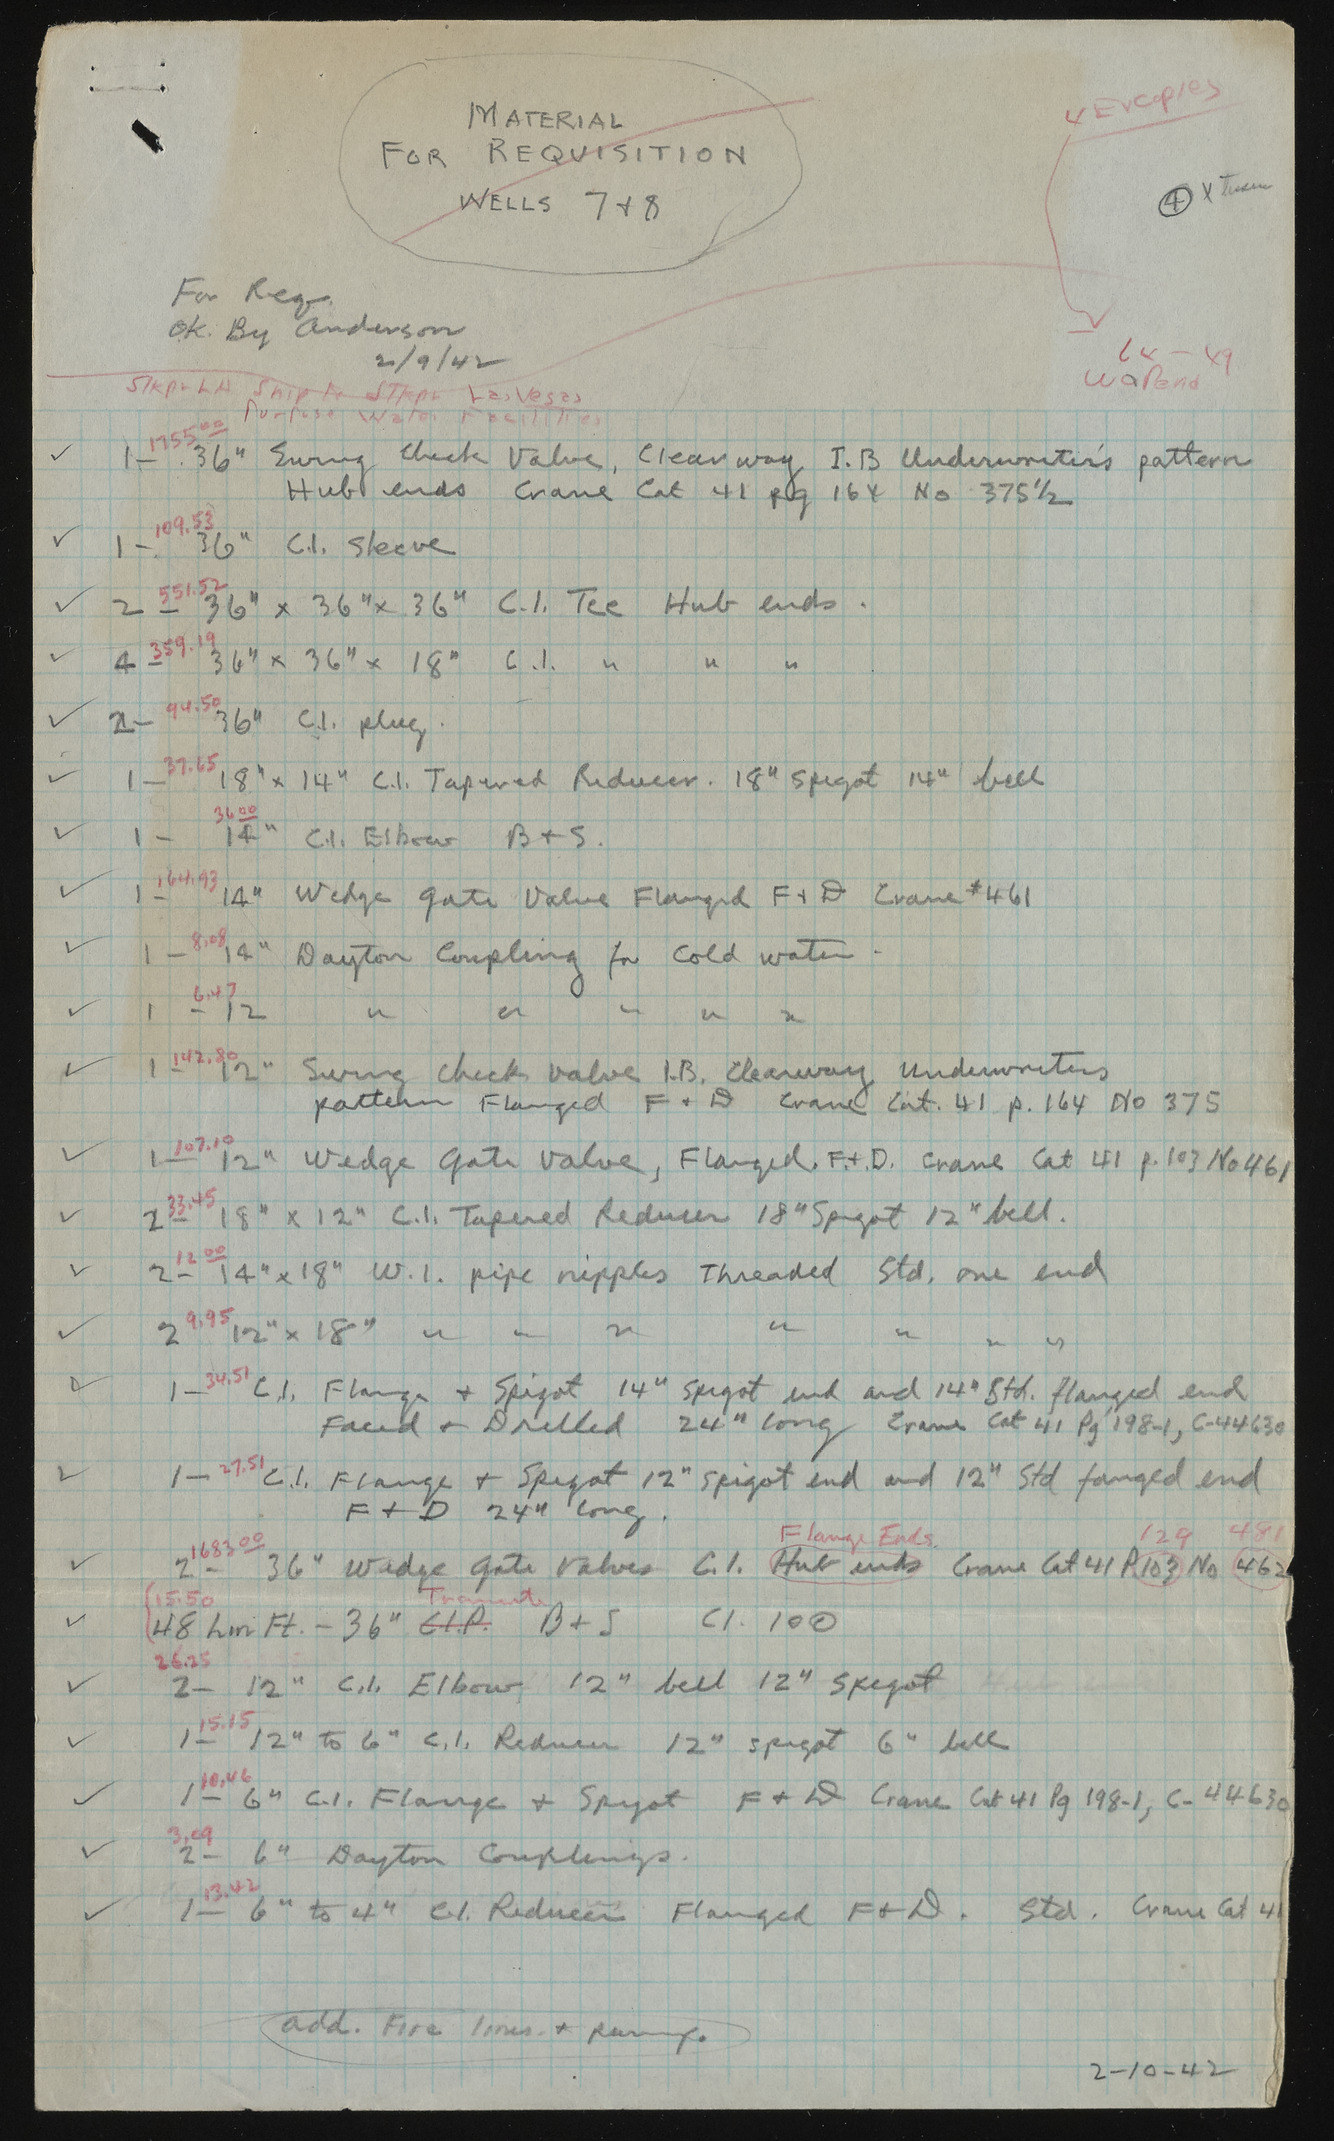 MATERIAL
FOR REQUISITION
WELLS 7 + 8
4 Excopies
④ X
For Req.
OK. By Anderson
2/9/42
64 - 49
Stkpr LA Ship to Stkpr Las Vegas
Purpose Water Facilities
1 - 1755.00 36" Swing Check Valve, Clearway I.B Underwriter's pattern
Hub ends Crane Cat 41 pg 164 No 375 1/2
1 - 109.53 36" C.I. Sleeve
2 - 551.52 36" x 36" x 36" C.I. Tee Hub ends.
4 - 359.19 36" x 36" x 18" C.I. " " "
2 - 94.50 36" C.I. plug.
1 - 37.65 18" x 14" C.I. Tapered Reducer. 18" Spigot 14" bell
1 - 36.00 14" C.I. Elbow B + S.
1 - 164.93 14" Wedge Gate Valve Flanged F + D Crane #461
1 - 8.08 14" Dayton Coupling for Cold water.
1 - 6.47 12 " " " " "
1 - 142.80 12" Swing Check Valve I.B. Clearway Underwriters
pattern Flanged F + D Crane Cat. 41 p. 164 No 375
1 - 107.10 12" Wedge Gate Valve, Flanged. F.+.D. Crane Cat 41 p. 103 No 461
2 - 33.45 18" x 12" C.I. Tapered Reducer 18" Spigot 12" bell.
2 - 12.00 14" x 18" W.I. pipe nipples Threaded Std. one end
2 9.95 12" x 18" " " " " " " "
1 - 34.51 C.I. Flange + Spigot 14" spigot end and 14" Std. flanged end
Faced + Drilled 24" long Crane Cat 41 Pg 198-1, C-44630
1 - 27.51 C.I. Flange + Spigot 12" spigot end and 12" Std fanged end
F + D 24" long.
Flange Ends. 129 481
2 - 1683.00 36" Wedge Gate Valves C.I. Hub ends Crane Cat 41 P. 103 No 462
15.50 Transite
48 Lin Ft. - 36" C.I.P. B + S Cl. 100
26.25
2 - 12" C.I. Elbow 12" bell 12" Spigot
1 - 15.15 12" to 6" C.I. Reducer 12" spigot 6" bell
1 - 10.46 6" C.I. Flange + Spigot F + D Crane Cat 41 Pg 198-1, C-44630
3.09
2 - 6" Dayton Couplings.
1 - 13.42 6" to 4" C.I. Reducer Flanged F + D. Std. Crane Cat 41
add. Fire lines +
2-10-42